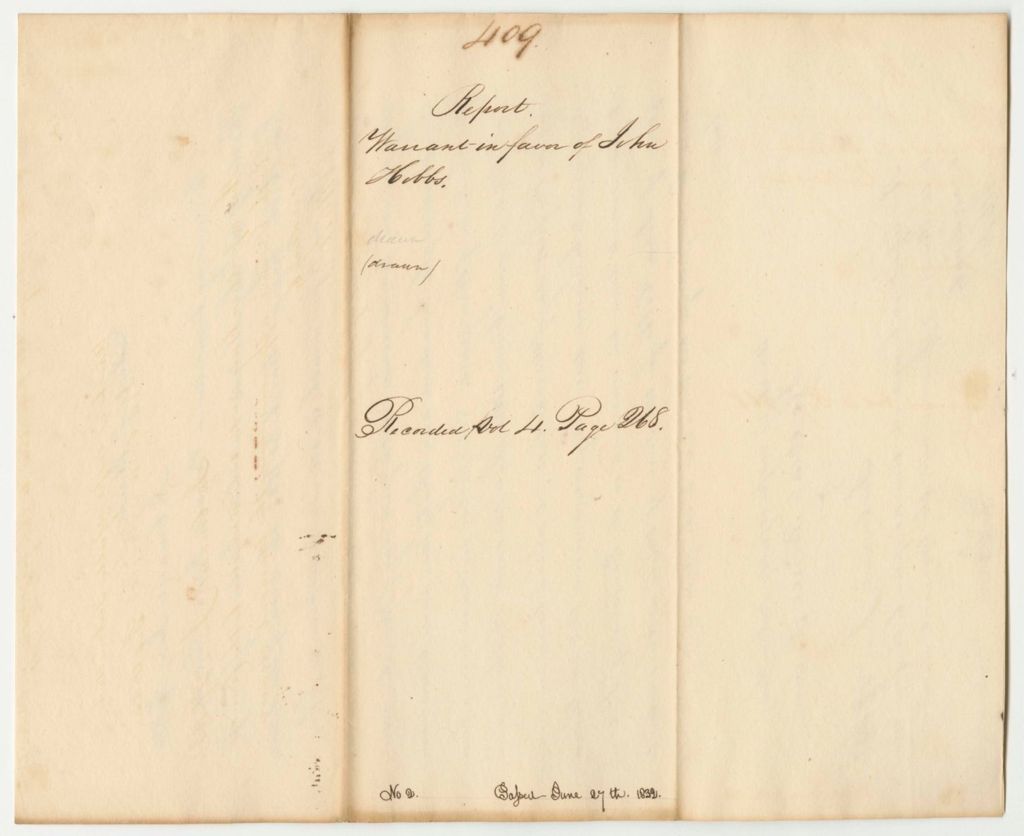 409.
Report.
Warrant in favor of John
Hobbs.
drawn
(drawn)
Recorded Vol 4. Page 268.
No 2. Passed June 27th. 1832.